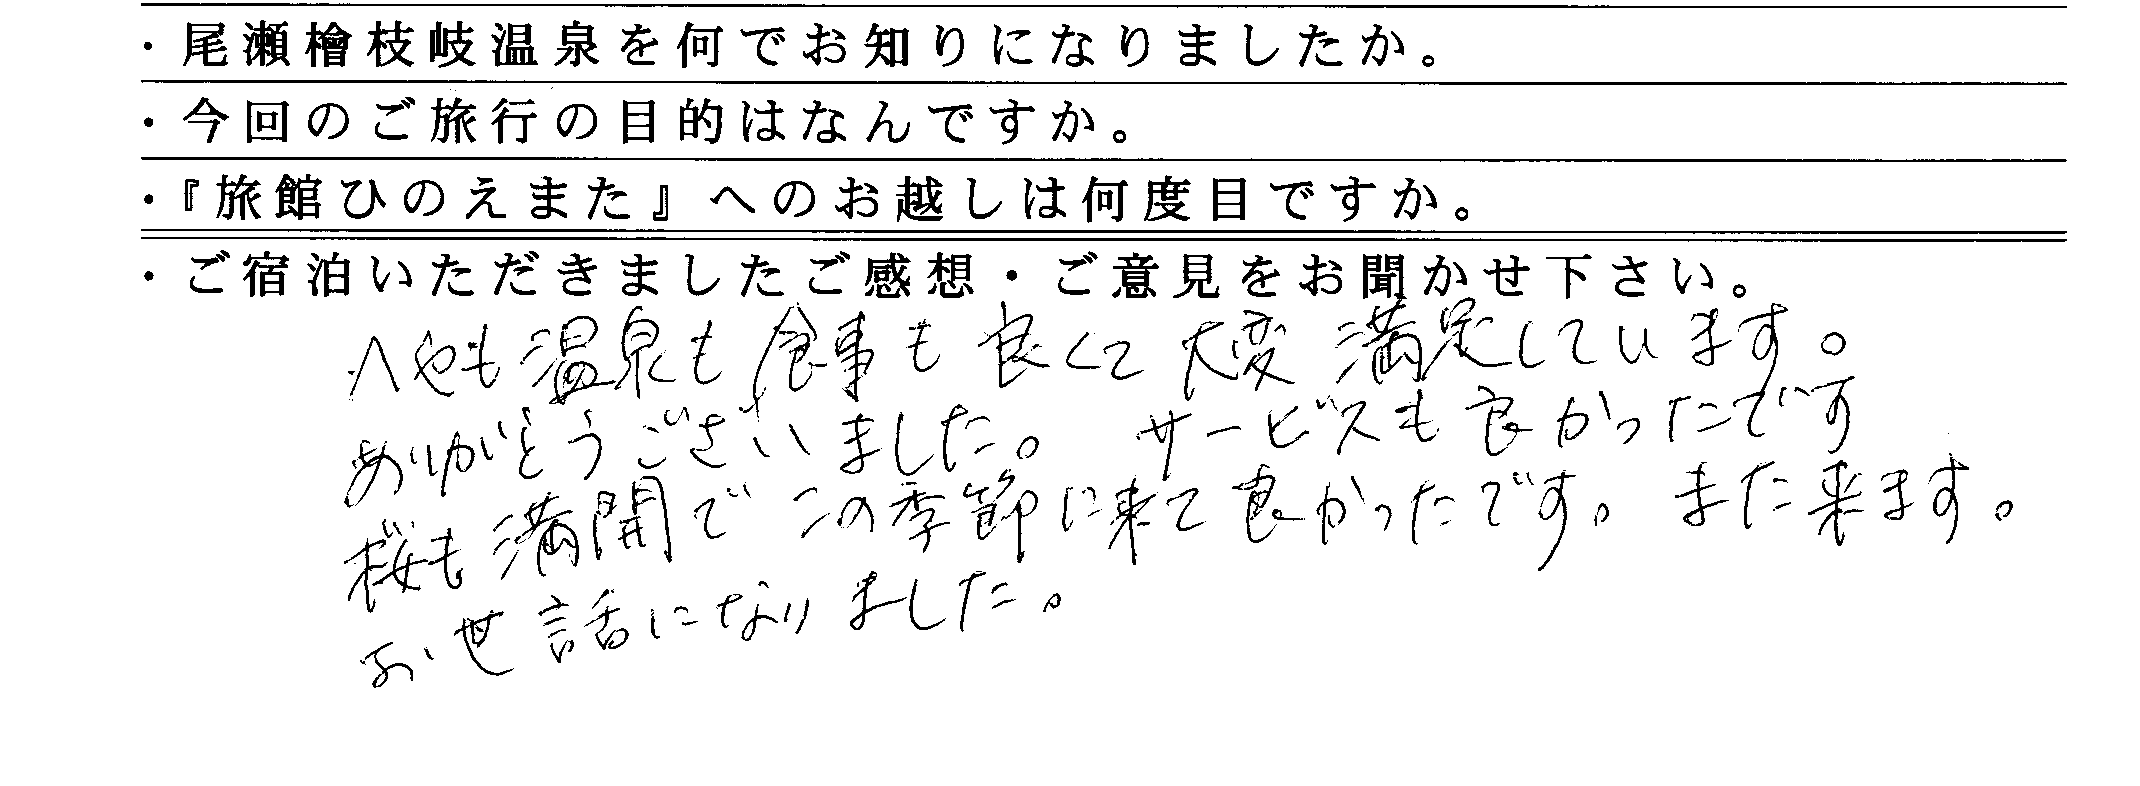 ・尾瀬檜枝岐温泉を何でお知りになりましたか。
・今回のご旅行の目的はなんですか。
・『旅館ひのえまた』へのお越しは何度目ですか。
・ご宿泊いただきましたご感想・ご意見をお聞かせ下さい。
へやも温泉も食事も良くて大変満足しています。
ありがとうございました。 サービスも良かったです
桜も満開でこの季節に来て良かったです。また来ます。
お世話になりました。